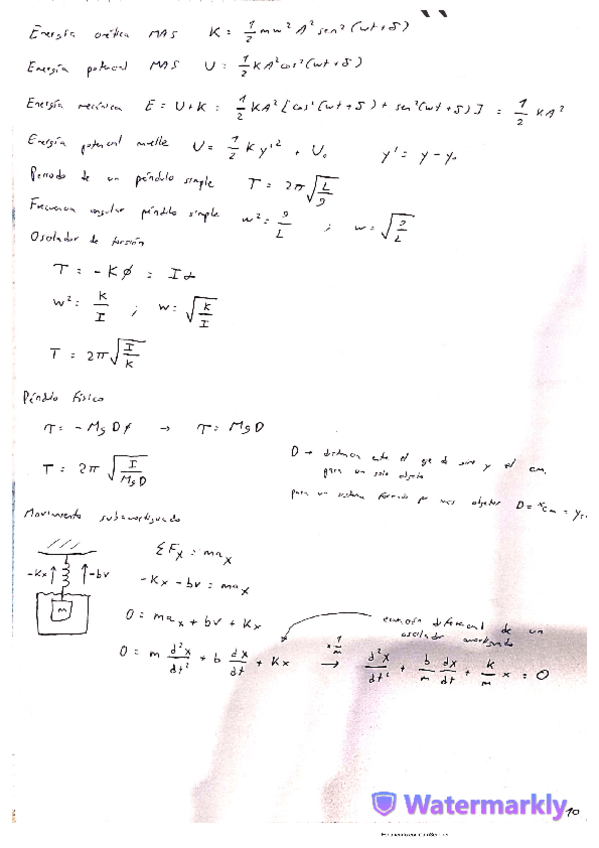 Energía cinética MAS K = 1/2 mw² A² sen² (wt + δ)
Energía potencial MAS U = 1/2 KA² cos² (wt + δ)
Energía mecánica E = U + K = 1/2 KA² [cos² (wt + δ) + sen² (wt + δ)] = 1/2 KA²
Energía potencial muelle U = 1/2 K y'² + U₀ y' = y - y₀
Periodo de un péndulo simple T = 2π √(L/g)
Frecuencia angular péndulo simple w² = g/L ; w = √(g/L)
Oscilador de torsión
τ = -Kφ = Iα
w² = K/I ; w = √(K/I)
T = 2π √(I/K)
Péndulo físico
τ = -MgDφ → τ = MgD
T = 2π √(I/MgD)
D → distancia entre el eje de giro y el cm.
para un solo objeto
para un sistema formado por más objetos D = x_cm = y
Movimiento subamortiguado
ΣFx = max
-Kx -bv
m
-Kx - bv = max
0 = max + bv + Kx
ecuación diferencial de un
oscilador amortiguado
0 = m d²x/dt² + b dx/dt + Kx × 1/m → d²x/dt² + b/m dx/dt + K/m x = 0
Watermarkly
10